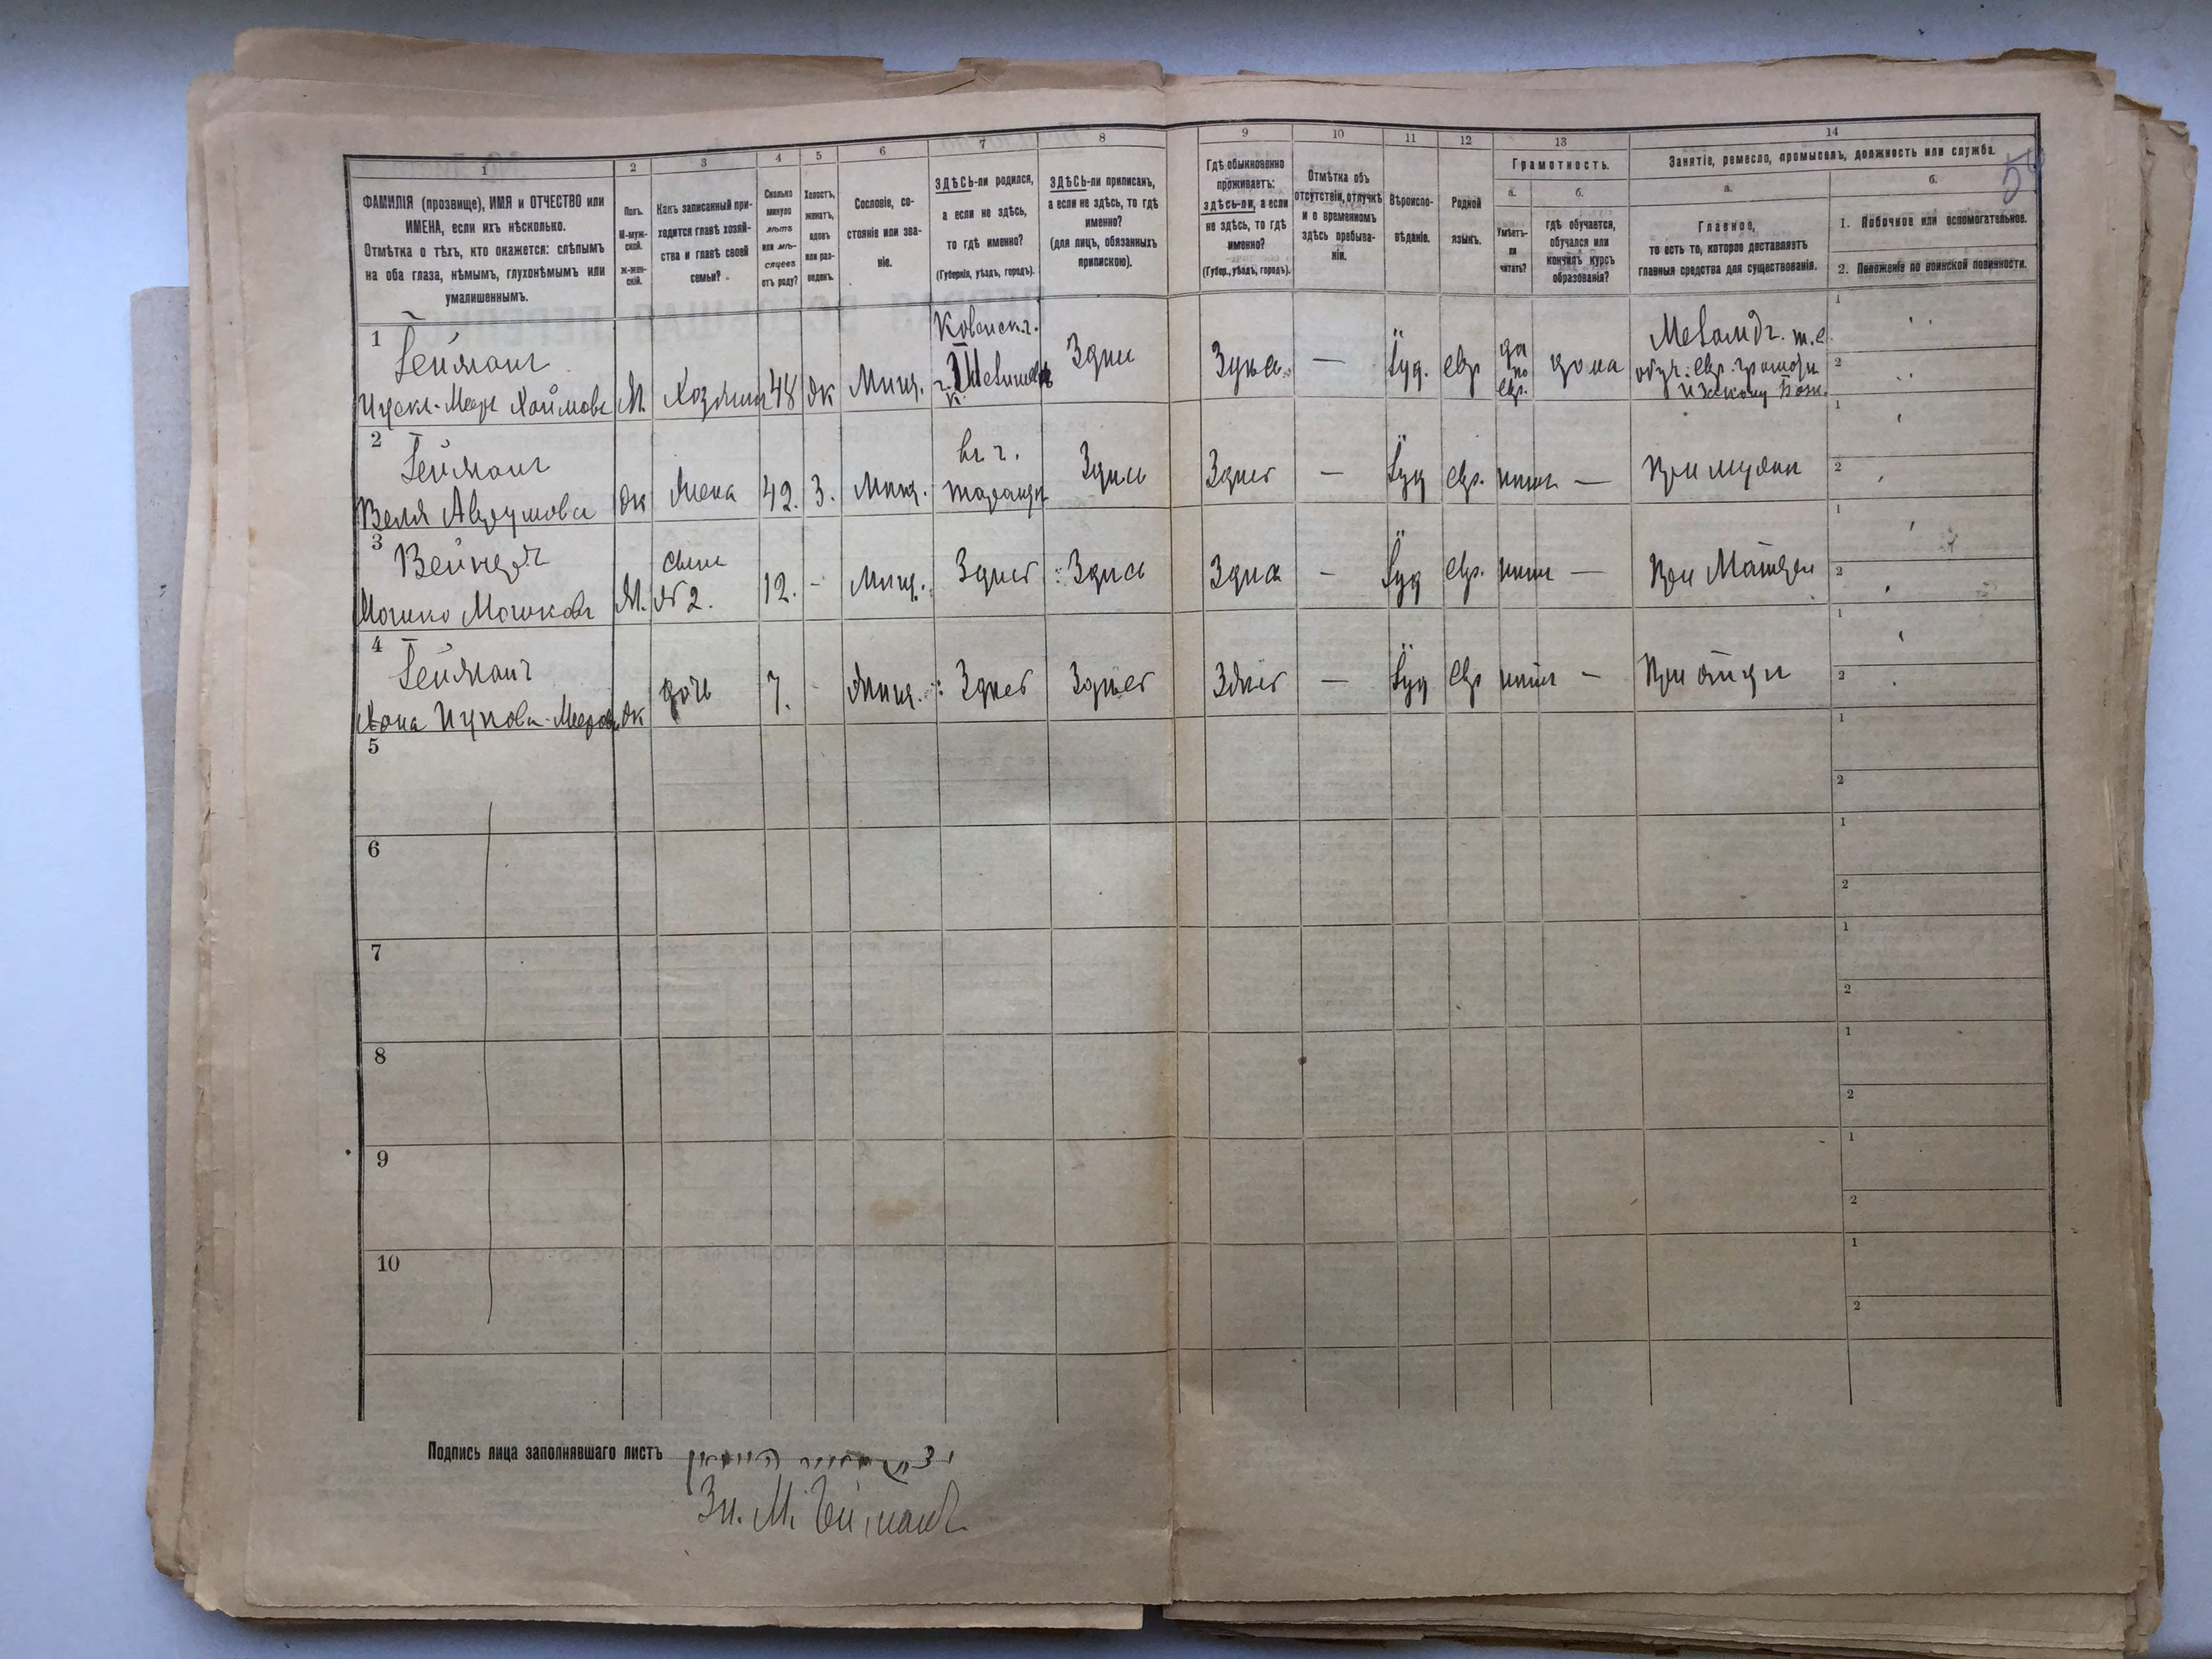 1
2
3
4
5
6
7
8
9
10
11
12
13
14
ФАМИЛІЯ (прозвище), ИМЯ и ОТЧЕСТВО или
ИМЕНА, если ихъ нѣсколько.
Отмѣтка о тѣхъ, кто окажется: слѣпымъ
на оба глаза, нѣмымъ, глухонѣмымъ или
умалишеннымъ.
Полъ.
М-муж-
ской.
Ж-жен-
скій.
Какъ записанный при-
ходится главѣ хозяй-
ства и главѣ своей
семьи?
Сколько
минуло
лѣтъ
или мѣ-
сяцевъ
отъ роду?
Холостъ,
женатъ,
вдовъ
или раз-
веденъ.
Сословіе, со-
стояніе или зва-
ніе.
ЗДѢСЬ-ли родился,
а если не здѣсь,
то гдѣ именно?
(Губернія, уѣздъ, городъ).
ЗДѢСЬ-ли приписанъ,
а если не здѣсь, то гдѣ
именно?
(для лицъ, обязанныхъ
припискою).
Гдѣ обыкновенно
проживаетъ:
здѣсь-ли, а если
не здѣсь, то гдѣ
именно?
(Губер., уѣздъ, городъ).
Отмѣтка объ
отсутствіи, отлучкѣ
и о временномъ
здѣсь пребыва-
ніи.
Вѣроиспо-
вѣданіе.
Родной
языкъ.
Грамотность.
а.
Умѣетъ-
ли
читать?
б.
гдѣ обучается,
обучался или
кончилъ курсъ
образованія?
Занятіе, ремесло, промыселъ, должность или служба.
а.
Главное,
то есть то, которое доставляетъ
главныя средства для существованія.
б.
1. Побочное или вспомогательное.
2. Положеніе по воинской повинности.
1
Гейманъ
М.
Хозяинъ
48
ж
Мѣщ.
Ковенск. г.
Здѣсь
Здѣсь
—
Іуд.
евр
да
по
евр.
дома
Меламдъ. т.е.
1
2
2
Гейманъ
Ж
Жена
42.
З.
Мѣщ.
Здѣсь
Здѣсь
—
Іуд
евр.
нѣтъ
—
При мужѣ
1
2
3
Мошко Мошковъ
М.
сынъ
№ 2.
12.
-
Мѣщ.
Здѣсь
Здѣсь
Здѣсь
—
Іуд
евр.
нѣтъ
—
При Матери
1
2
4
Гейманъ
Ж
дочь
7.
-
Мѣщ.
Здѣсь
Здѣсь
Здѣсь
—
Іуд
евр
нѣтъ
—
При отцѣ
1
2
5
1
2
6
1
2
7
1
2
8
1
2
9
1
2
10
1
2
Подпись лица заполнявшаго листъ